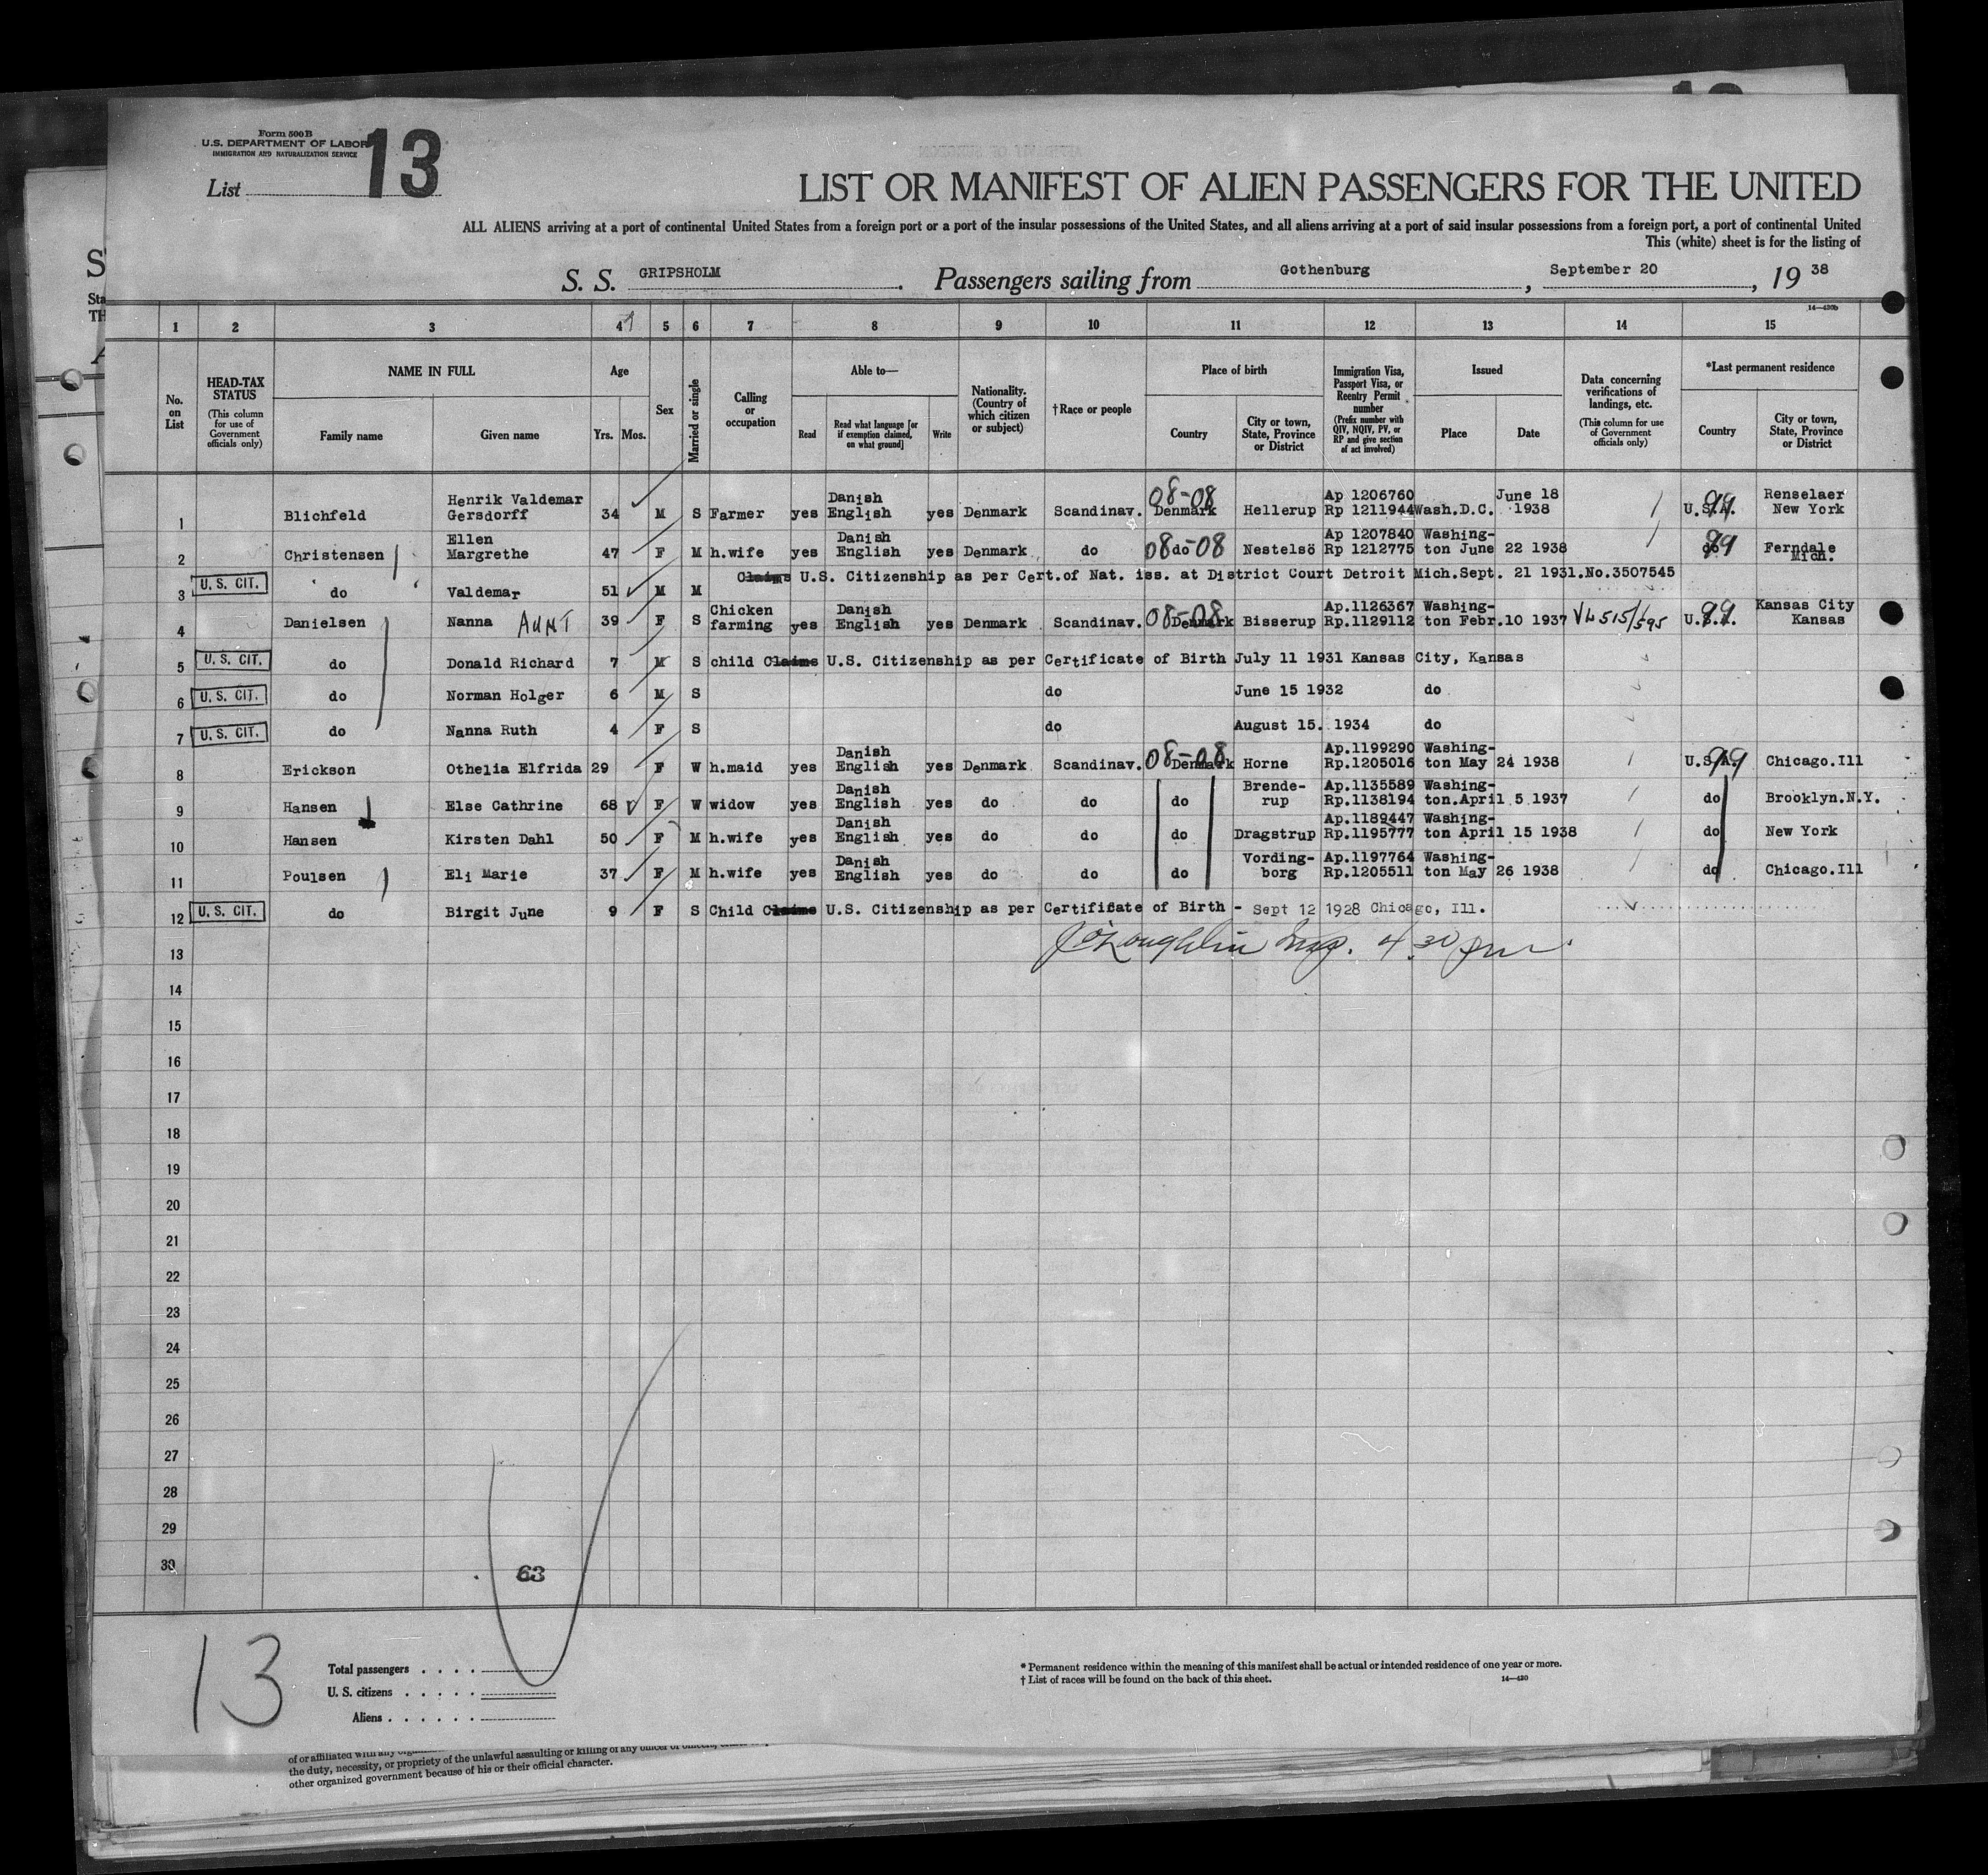 Form 500B
U.S. DEPARTMENT OF LABOR
IMMIGRATION AND NATURALIZATION SERVICE
List 13
LIST OR MANIFEST OF ALIEN PASSENGERS FOR THE UNITED
ALL ALIENS arriving at a port of continental United States from a foreign port or a port of the insular possessions of the United States, and all aliens arriving at a port of said insular possessions from a foreign port, a port of continental United
This (white) sheet is for the listing of
S. S. GRIPSHOLM. Passengers sailing from Gothenburg, September 20, 19 38
14—430b
1 2 3 4 5 6 7 8 9 10 11 12 13 14 15
No. on List
HEAD-TAX STATUS
(This column for use of Government officials only)
NAME IN FULL
Family name Given name
Age
Yrs. Mos.
Sex
Married or single
Calling or occupation
Able to—
Read
Read what language [or if exemption claimed, on what ground]
Write
Nationality. (Country of which citizen or subject)
†Race or people
Place of birth
Country
City or town, State, Province or District
Immigration Visa, Passport Visa, or Reentry Permit number
(Prefix number with QIV, NQIV, PV, or RP and give section of act involved)
Issued
Place Date
Data concerning verifications of landings, etc.
(This column for use of Government officials only)
*Last permanent residence
Country
City or town, State, Province or District
1 Blichfeld Henrik Valdemar Gersdorff 34 M S Farmer yes Danish English yes Denmark Scandinav. 08-08 Denmark Hellerup Ap 1206760 Rp 1211944 Wash.D.C. June 18 1938 U.S.A. 99 Renselaer New York
2 Christensen Ellen Margrethe 47 F M h.wife yes Danish English yes Denmark do 08 do -08 Nestelsö Ap 1207840 Rp 1212775 Washington June 22 1938 do 99 Ferndale Mich.
3 U.S. CIT. do Valdemar 51 M M Claims U.S. Citizenship as per Cert.of Nat. iss. at District Court Detroit Mich.Sept. 21 1931.No.3507545
4 Danielsen Nanna AUNT 39 F S Chicken farming yes Danish English yes Denmark Scandinav. 08-08 Denmark Bisserup Ap.1126367 Rp.1129112 Washington Febr.10 1937 VL 515/595 U.S.A. 99 Kansas City Kansas
5 U.S. CIT. do Donald Richard 7 M S child Claims U.S. Citizenship as per Certificate of Birth July 11 1931 Kansas City, Kansas
6 U.S. CIT. do Norman Holger 6 M S do June 15 1932 do
7 U.S. CIT. do Nanna Ruth 4 F S do August 15. 1934 do
8 Erickson Othelia Elfrida 29 F W h.maid yes Danish English yes Denmark Scandinav. 08-08 Denmark Horne Ap.1199290 Rp.1205016 Washington May 24 1938 U.S.A. 99 Chicago.Ill
9 Hansen Else Cathrine 68 F W widow yes Danish English yes do do do Brenderup Ap.1135589 Rp.1138194 Washington.April 5 1937 do Brooklyn.N.Y.
10 Hansen Kirsten Dahl 50 F M h.wife yes Danish English yes do do do Dragstrup Ap.1189447 Rp.1195777 Washington April 15 1938 do New York
11 Poulsen Eli Marie 37 F M h.wife yes Danish English yes do do do Vordingborg Ap.1197764 Rp.1205511 Washington May 26 1938 do Chicago.Ill
12 U.S. CIT. do Birgit June 9 F S Child Claims U.S. Citizenship as per Certificate of Birth - Sept 12 1928 Chicago, Ill.
13 J O'Loughlin Insp. 4.30 pm
14
15
16
17
18
19
20
21
22
23
24
25
26
27
28
29
30
63
13
Total passengers
U. S. citizens
Aliens
* Permanent residence within the meaning of this manifest shall be actual or intended residence of one year or more.
† List of races will be found on the back of this sheet.
14—430
the duty, necessity, or propriety of the unlawful assaulting or killing of any officer or officers,
other organized government because of his or their official character.